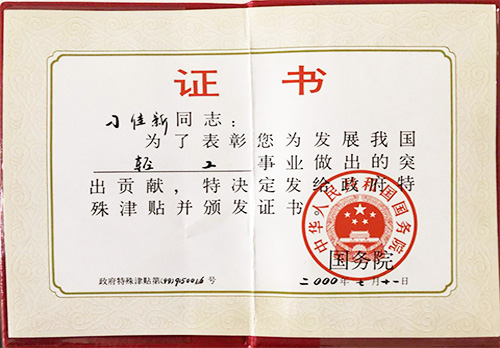 证书
佳新同志:
为了表彰您为发展我国
轻工事业做出的突
出贡献,特决定发给政府特
殊津贴并颁发证书。
中华人民共和国国务院
国务院
政府特殊津贴第 号
二000年 月十一日